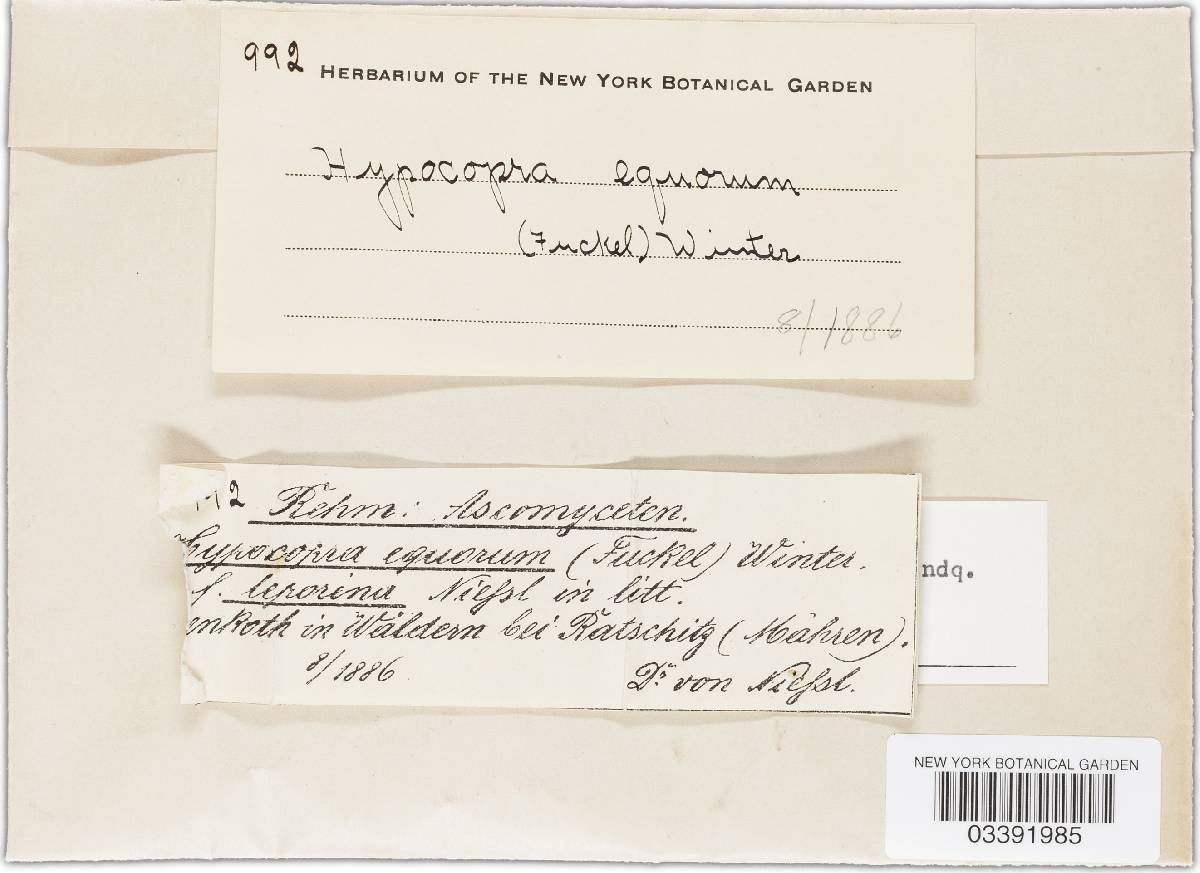 992 HERBARIUM OF THE NEW YORK BOTANICAL GARDEN
Hypocopra equorum
(Fuckel) Winter
8/1886
992 Rehm: Ascomyceten.
Hypocopra equorum (Fuckel) Winter.
f. leporina Niessl in litt.
enkoth in Wäldern bei Ratschitz (Mähren).
8/1886
Dr von Niessl.
ndq.
NEW YORK BOTANICAL GARDEN
03391985